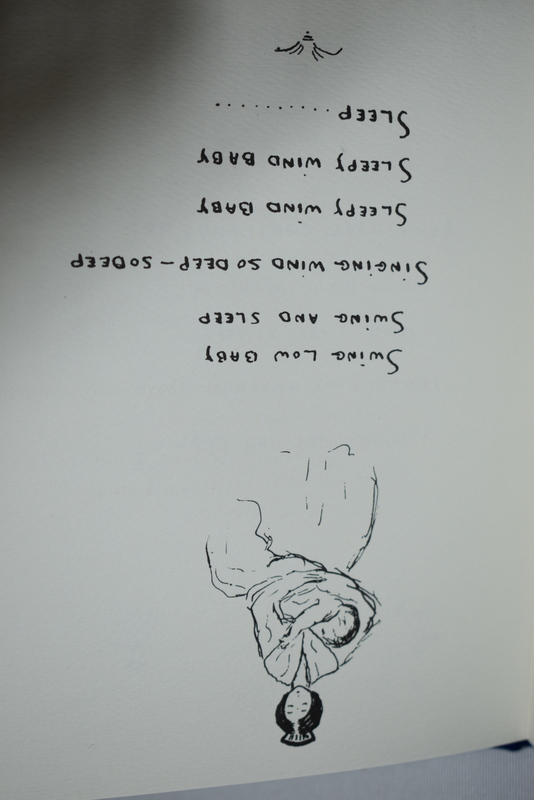 SWING LOW BABY
SWING AND SLEEP
SINGING WIND SO DEEP – SO DEEP
SLEEPY WIND BABY
SLEEPY WIND BABY
SLEEP ..........